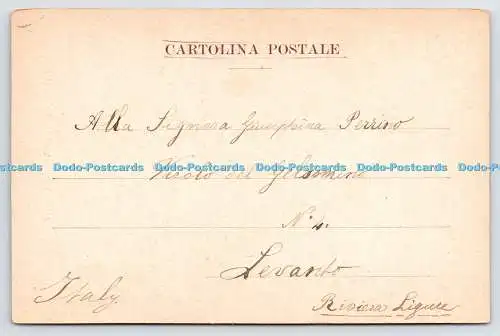 CARTOLINA POSTALE
Alla Signora Giusephina Perrino
Dodo-Postcards Dodo-Postcards Dodo-Postcards Dodo-Postcards Dodo-Postcards
Vicolo del Gelsomino
N. 4.
Levanto
Italy
Riviera Ligure